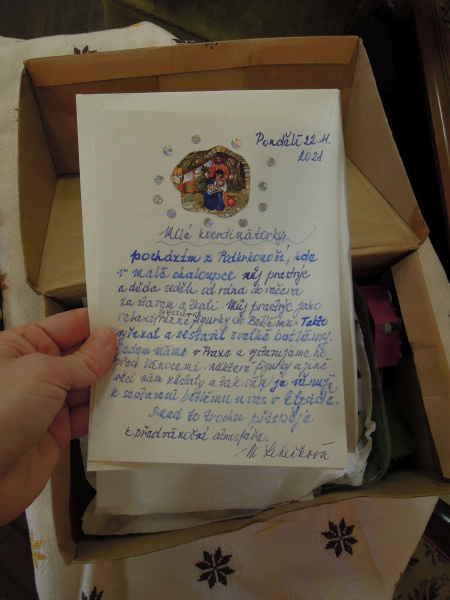 Pondělí 22.11.
2021
Milé koordinátorky,
pocházím z Podkrkonoší, kde
v malé chaloupce můj praděje
a děda seděli od rána do večera
za stavem a tkali. Můj praděje jako
relaxaci vyřezával různé figurky do Betlému. Takto
vyřezal a sestavil svelké betlémy.
Jeden máme v Praze a vystavujeme ho
před Vánocemi. Některé figurky a jiné
věci nám zbyly a tak vám je věnuji
k sestavení betlému u vás v
Snad to trochu přispěje
k předvánoční atmosféře.